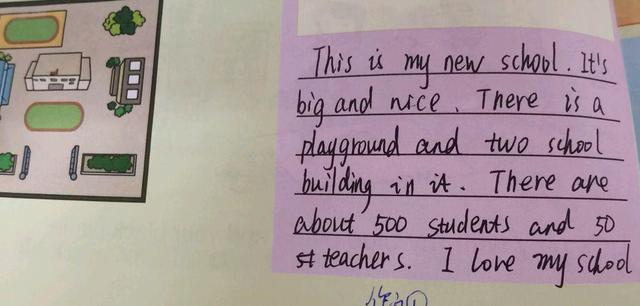 This is my new school. It's
big and nice. There is a
playground and two school
building in it. There are
about 500 students and 50
st teachers. I love my school